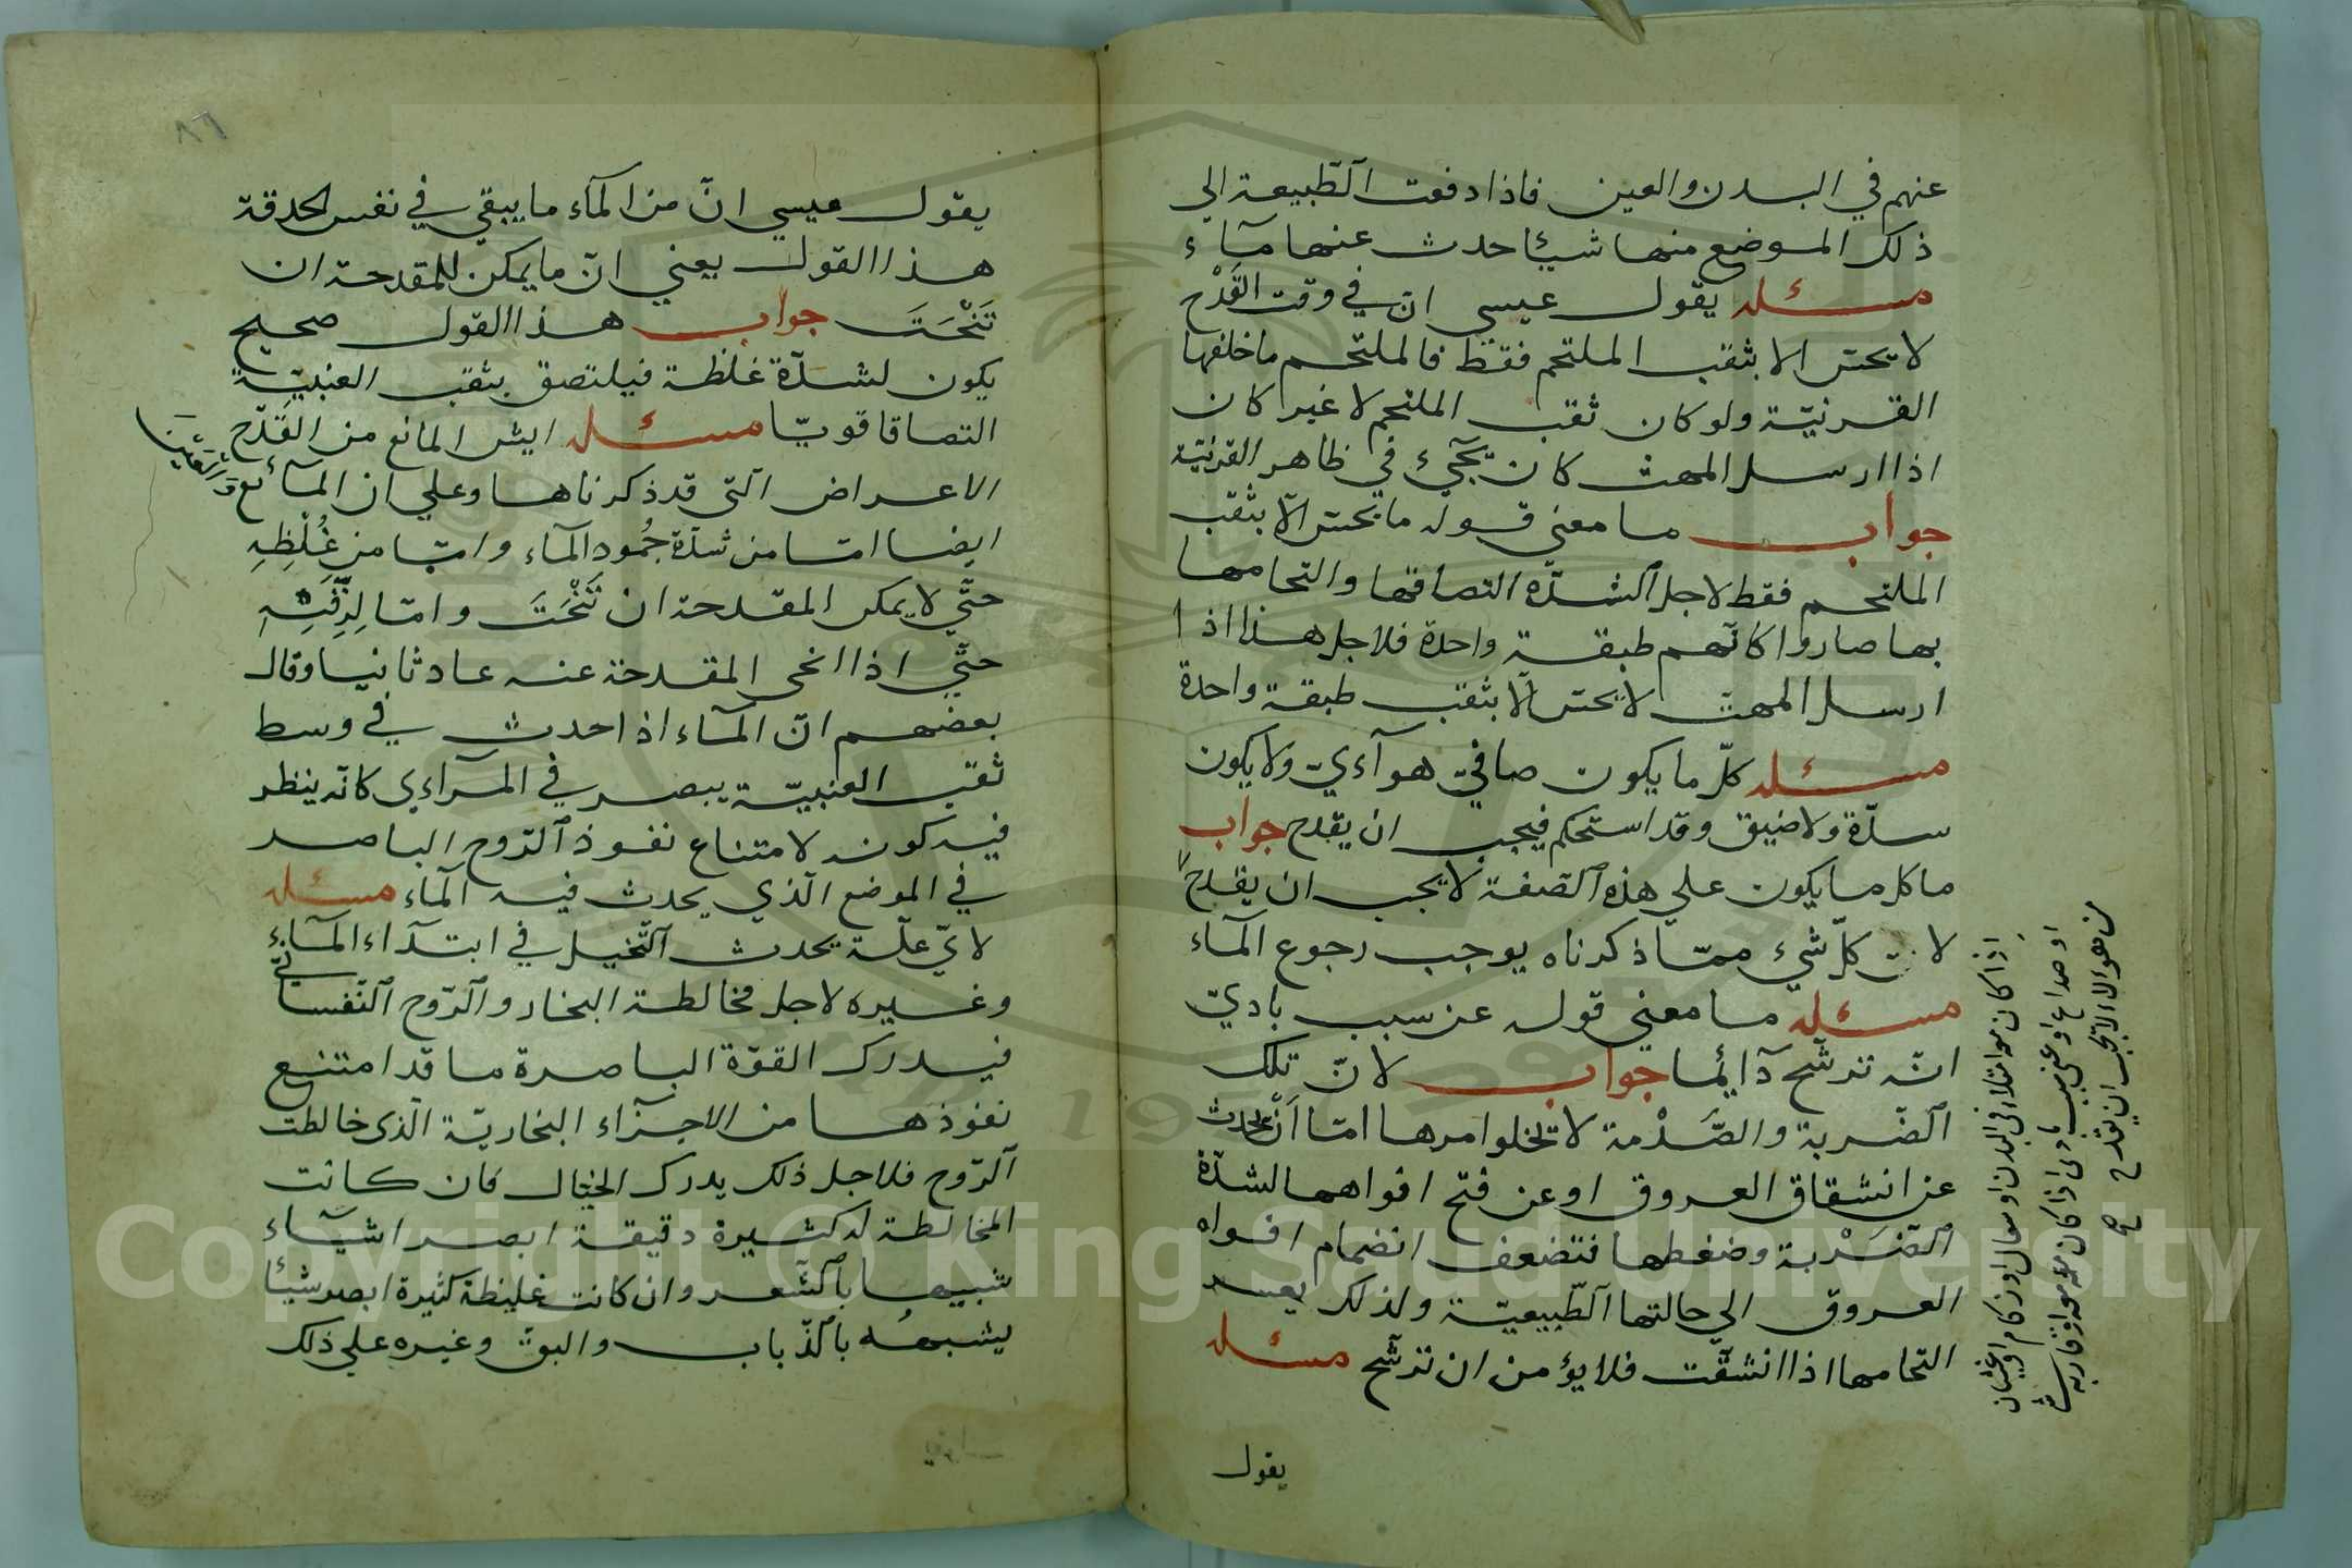 عنهم في البدن والعين فاذا دفعت الطّبيعة الي
ذلك الموضع منها شيئا حدث عنها مآء
مسئله يقول عيسي انّ في وقت القَدْح
لا يحتس الا بثقب الملتحم فقط فالملتحم ما خلفها
القرنيّة ولو كان ثقب الملتحم لا غير كان
اذا ارسل المهت كان يجيء في ظاهر القرنيّة
جواب ما معني قوله ما يحتس الّا بثقب
الملتحم فقط لاجل الشدّه التصاقها والتحامها
بها صاروا كانّهم طبقة واحدة فلاجل هذا اذا
ارسل المهت لا يحتس الّا بثقب طبقة واحدة
مسئله كلّ ما يكون صافي هوآءي ولا يكون
سدّة ولا ضيق وقد استحكم فيجب ان يقدح جواب
ما كل ما يكون علي هذه الصّفة لا يجب ان يقدح
لانّ كلّ شيء ممّا ذكرناه يوجب رجوع المآء
مسئله ما معني قوله عن سبب بادي
انّه ترشّح دآئما جواب لانّ تلك
الضّربة والصَّدْمة لا تخلوا مرها امّا انْ يحدث
عن انشقاق العروق او عن فتح افواهها لشدّة
الضّرْبة وضغطها فتضعف انضمام افواه
العروق الي حالتها الطّبيعيّة ولذلك يعسر
التحامها اذا انشقّت فلا يؤمن ان ترشّح مسئله
يقول
اذا كان معه امتلاء في البدن او سعال او زكام او غثيان
او صداع او عن سبب بادي اذا كان معه
فهولاء لا يجب ان يقدح صح
٨٦
يقول عيسي انّ من المآء ما يبقي في نفس الحدقة
هذا القول يعني انّ ما يمكن للمقدحة ان
تَنْحَتَ جواب هذا القول صحيح
يكون لشدّة غلظة فيلتصق بثقب العنبيّة
التصاقا قويّا مسئله ايش المانع من القَدْح
الاعراض الّتي قد ذكرناها وعلي ان المآئع
ايضا امّا من شدّة جُمودِ المآء وامّا من غُلْظِهِ
حتّي لا يمكن المقدحة ان تَنْحَتَ وامّا لِرِقَّتِهِ
حتّي اذا انحي المقدحة عنه عاد ثانيا وقال
بعضهم انّ المآء اذا حدث في وسط
ثقب العنبيّة يبصر في المرآءي كانّه ينظر
فيه كونه لامتناع نفوذ الرّوح الباصر
في الموضع الّذي يحدث فيه المآء مسئله
لايّ علّة تحدث التّخيل في ابتدآء المآء
وغيره لاجل مخالطة البخار والرّوح النّفساني
فيدرك القوّة الباصرة ما قد امتنع
نفوذها من الاجزآء البخاريّة الّذي خالطت
الرّوح فلاجل ذلك يدرك الخيال فان كانت
المخالطة له كثيرة دقيقة ابصر اشيآء
شبيها بالشّعر وان كانت غليظة كثيرة ابصر شيئا
يشبهُه بالذّباب والبقّ وغيره علي ذلك